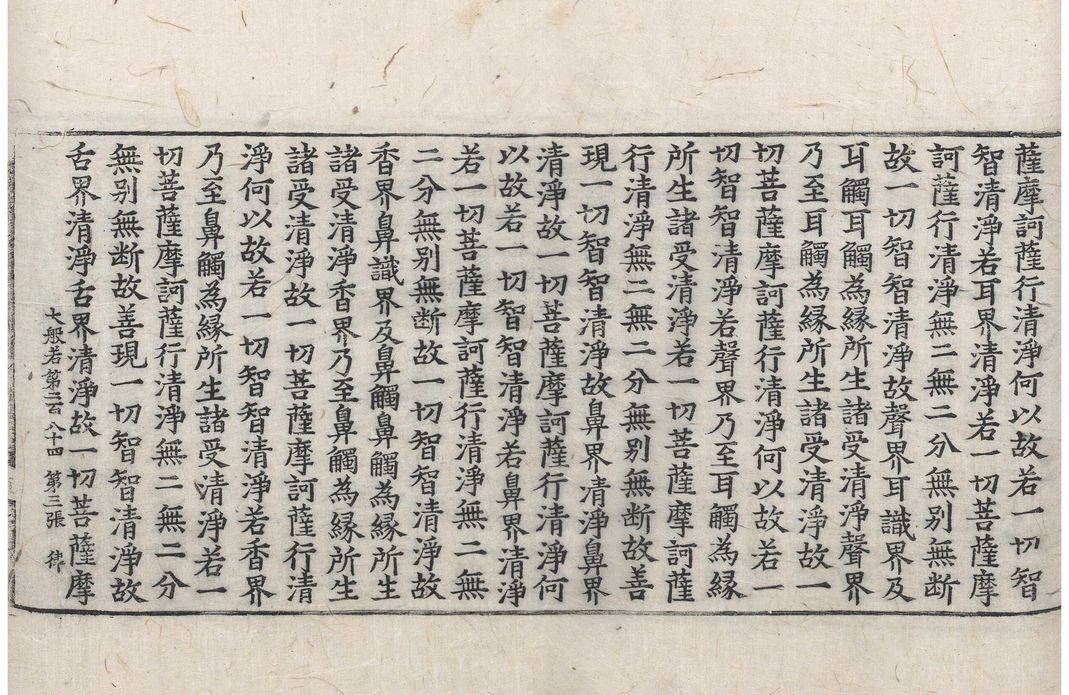 薩摩訶薩行清淨何以故若一切智
智清淨若耳界清淨若一切菩薩摩
訶薩行清淨無二無二分無别無断
故一切智智清淨故聲界耳識界及
耳觸耳觸為縁所生諸受清淨聲界
乃至耳觸為縁所生諸受清淨故一
切菩薩摩訶薩行清淨何以故若一
切智智清淨若聲界乃至耳觸為縁
所生諸受清淨若一切菩薩摩訶薩
行清淨無二無二分無别無断故善
現一切智智清淨故鼻界清淨鼻界
清淨故一切菩薩摩訶薩行清淨何
以故若一切智智清淨若鼻界清淨
若一切菩薩摩訶薩行清淨無二無
二分無别無断故一切智智清淨故
香界鼻識界及鼻觸鼻觸為縁所生
諸受清淨香界乃至鼻觸為縁所生
諸受清淨故一切菩薩摩訶薩行清
淨何以故若一切智智清淨若香界
乃至鼻觸為縁所生諸受清淨若一
切菩薩摩訶薩行清淨無二無二分
無别無断故善現一切智智清淨故
舌界清淨舌界清淨故一切菩薩摩
大般若第二百八十四 第三張 律